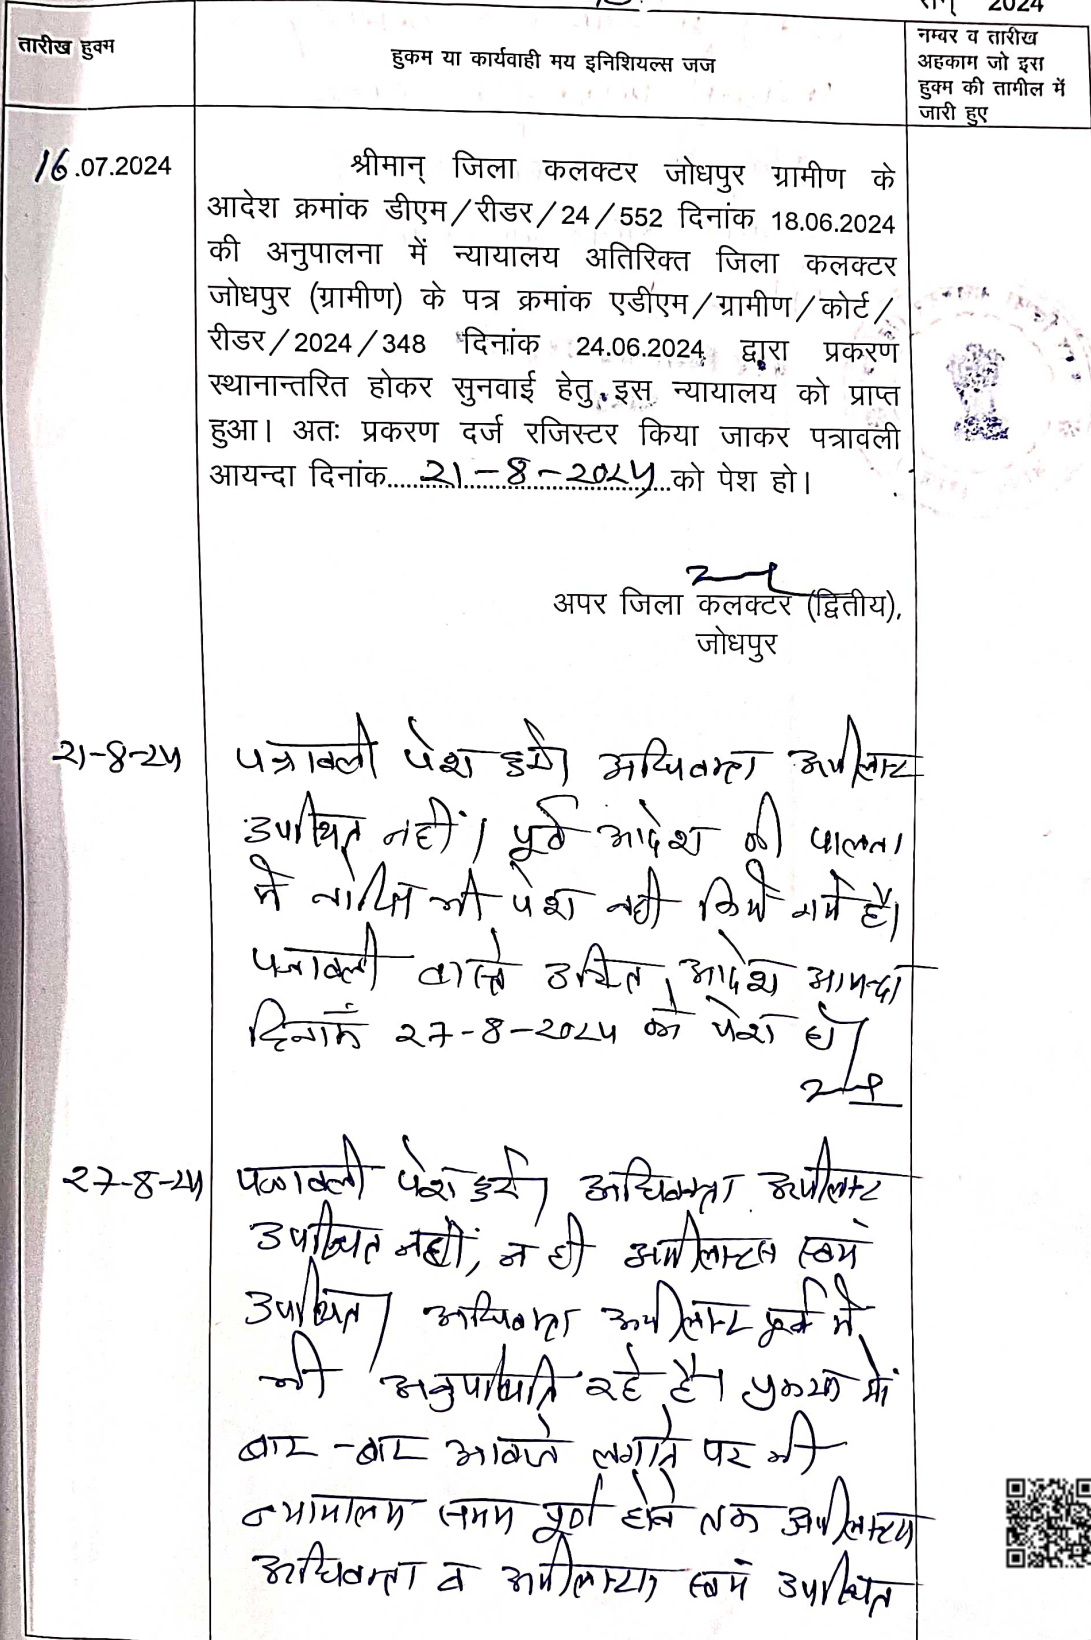 सन् 2024
तारीख हुक्म
हुकम या कार्यवाही मय इनिशियल्स जज
नम्बर व तारीख
अहकाम जो इस
हुक्म की तामील में
जारी हुए
16.07.2024
श्रीमान् जिला कलक्टर जोधपुर ग्रामीण के
आदेश क्रमांक डीएम/रीडर/24/552 दिनांक 18.06.2024
की अनुपालना में न्यायालय अतिरिक्त जिला कलक्टर
जोधपुर (ग्रामीण) के पत्र क्रमांक एडीएम/ग्रामीण/कोर्ट/
रीडर/2024/348 दिनांक 24.06.2024 द्वारा प्रकरण
स्थानान्तरित होकर सुनवाई हेतु इस न्यायालय को प्राप्त
हुआ। अतः प्रकरण दर्ज रजिस्टर किया जाकर पत्रावली
आयन्दा दिनांक.....२1-8-२०२५.....को पेश हो।
अपर जिला कलक्टर (द्वितीय),
जोधपुर
२1-8-२५
पत्रावली पेश हुयी। अधिवक्ता अपीलान्ट
उपस्थित नहीं। पूर्व आदेश की पालना
में नोटिस भी पेश नही किये गये है।
पत्रावली वास्ते उचित आदेश आयन्दा
दिनांक २७-8-२०२५ को पेश हो।
२७-8-२५
पत्रावली पेश हुई। अधिवक्ता अपीलान्ट
उपस्थित नहीं, न ही अपीलान्टस स्वयं
उपस्थित। अधिवक्ता अपीलान्ट पूर्व में
भी अनुपस्थिति रहे है। प्रकरण में
बार-बार आवाजे लगाने पर भी
न्यायालय समय पूर्ण होने तक अपीलान्टस
अधिवक्ता व अपीलान्टस स्वयं उपस्थित